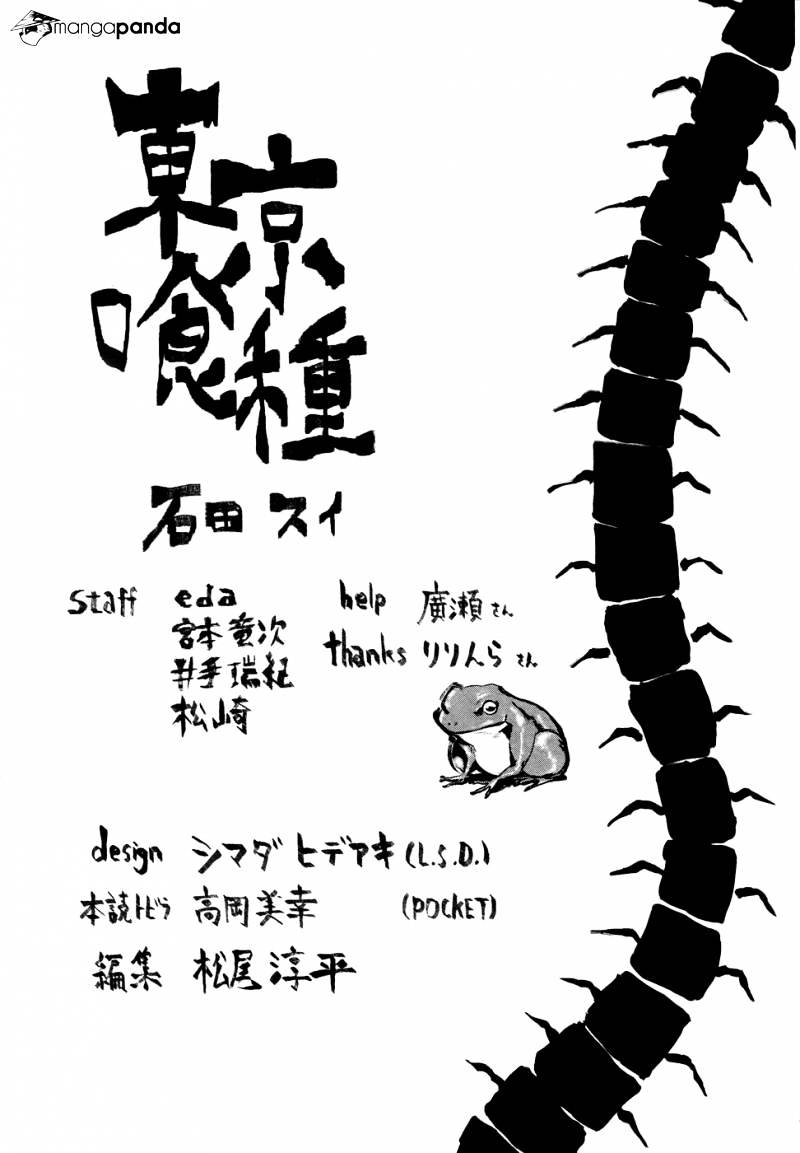 mangapanda
東京
喰種
石田 スイ
staff eda
宮本竜次
井手瑞紀
松崎
help 廣瀬さん
thanks りりんらさん
design シマダヒデアキ(L.S.D.)
本読トビラ 高岡美幸 (POCKET)
編集 松尾淳平